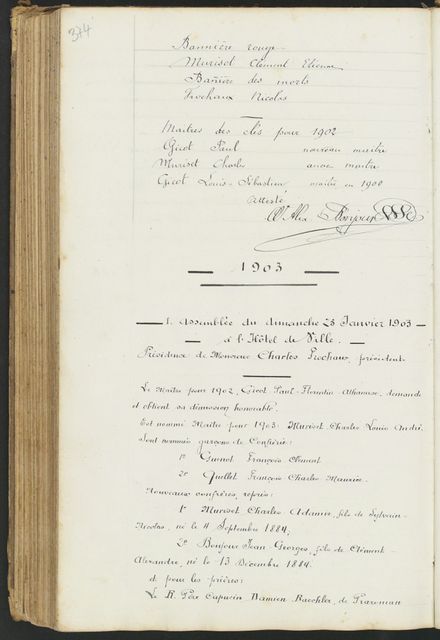 374
Bannière rouge
Murisot Clément Etienne
Banière des morts
Frochaux Nicolas
Maitres des clés pour 1902
Girot Paul nouveau maitre
Muriset Charles ancien maitre
Gicot Louis-Sébastien maitre en 1900
Atteste
Alex Bonjour
1903
1. Assemblée du dimanche 25 Janvier 1903
à l'Hôtel de Ville.
Présidence de Monsieur Charles Frochaux, président.
Le Maitre pour 1902, Gicot Paul-Florentin-Athanase, demande
et obtient sa démission honorable.
Est nommé Maitre pour 1903: Muriset Charles Louis André.
Sont nommés garçons de Confrérie:
1° Guenot François Clément
2° Quellet François Charles Maurice.
Nouveaux confrères, reprise:
1° Muriset Charles Adamir, fils de Sylvain-
Nicolas, né le 4 Septembre 1884;
2° Bonjour Jean-Georges, fils de Clément-
Alexandre, né le 13 Décembre 1884.
et pour les prières:
Le R. Père Capucin Damien Baechler, de Praroman